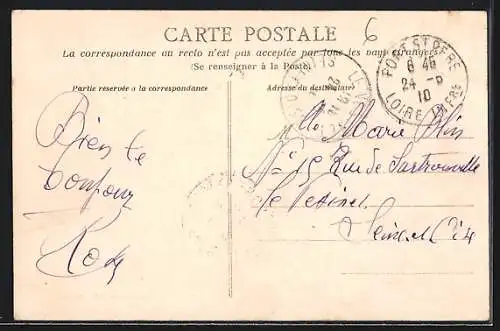 CARTE POSTALE
6
La correspondance au recto n'est pas acceptée par tous les pays étrangers
(Se renseigner à la Poste)
Partie réservée à la correspondance
Adresse du destinataire
PORT-ST-PÈRE
6 45
24 -8
10
LOIRE INFRE
Bien le
bonjour
Mlle Marie
N° 15 Rue de Sartrouville
Le Vésinet
Seine et